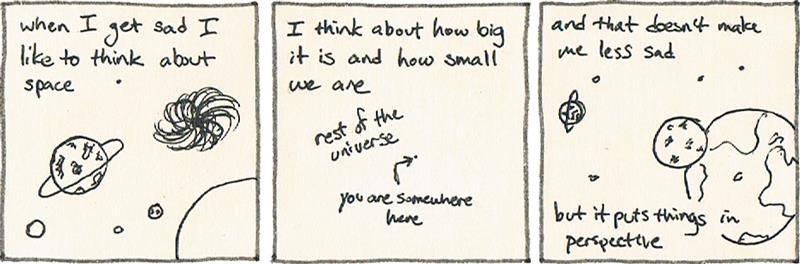 when I get sad I
like to think about
space
I think about how big
it is and how small
we are
rest of the
universe
you are somewhere
here
and that doesn't make
me less sad
but it puts things in
perspective